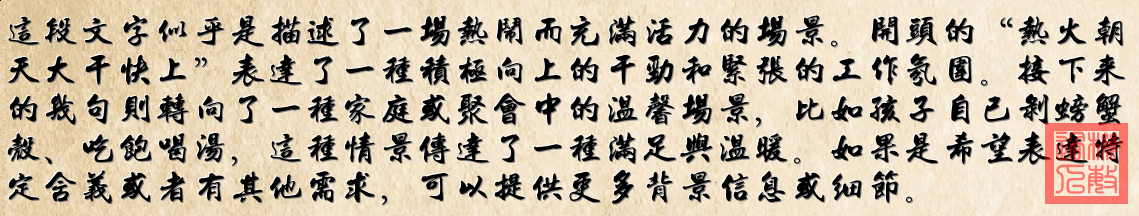 這段文字似乎是描述了一場熱鬧而充滿活力的場景。開頭的“熱火朝
天大干快上”表達了一種積極向上的干勁和緊張的工作氛圍。接下來
的幾句則轉向了一種家庭或聚會中的溫馨場景，比如孩子自己剝螃蟹
殼、吃飽喝湯，這種情景傳達了一種滿足與溫暖。如果是希望表達特
定含義或者有其他需求，可以提供更多背景信息或細節。